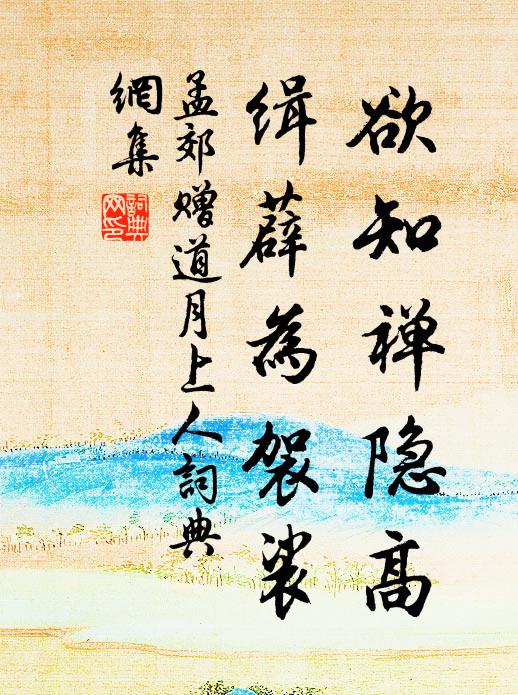 欲知禅隐高
缉薜為袈裟
孟郊赠道月上人詞典
網集
詞典
网印